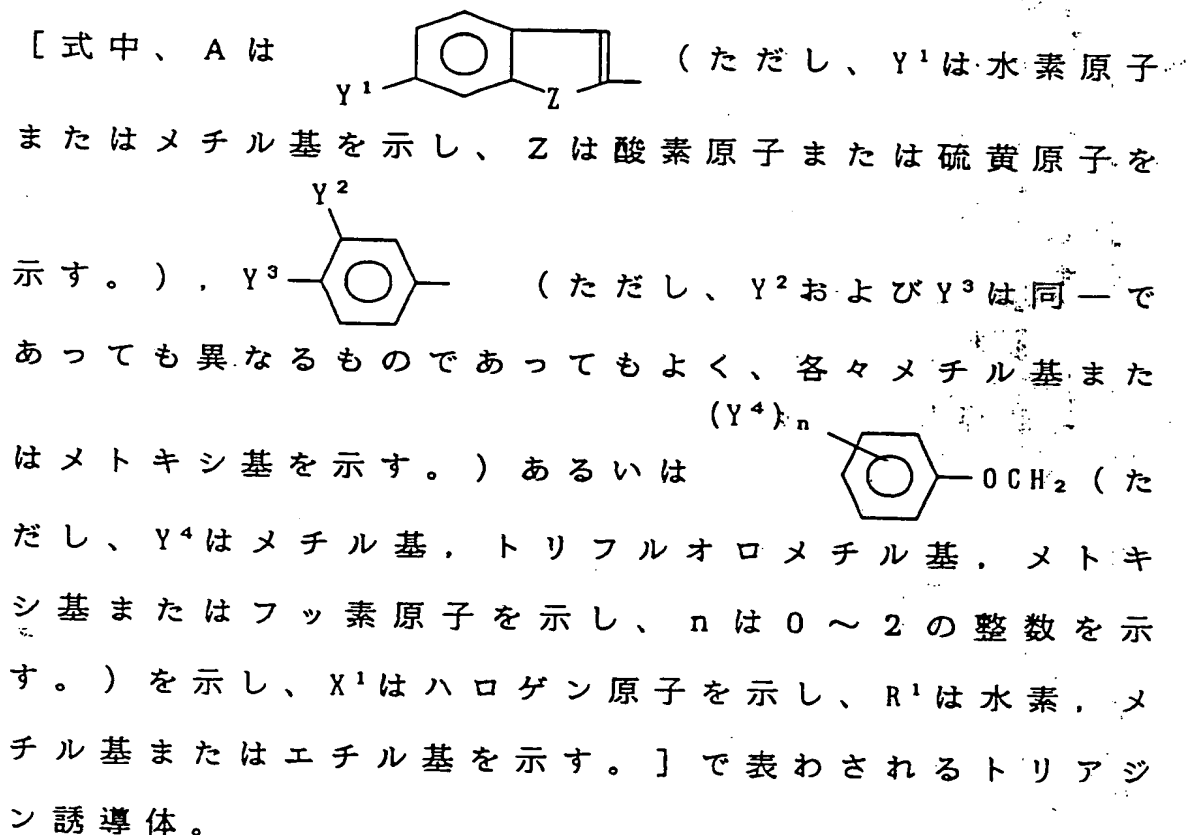 [式中、Aは Y¹ Z (ただし、Y¹は水素原子
またはメチル基を示し、Zは酸素原子または硫黄原子を
Y²
示す。)．Y³ (ただし、Y²およびY³は同一で
あっても異なるものであってもよく、各々メチル基また
(Y⁴)n
はメトキシ基を示す。)あるいは OCH₂ (た
だし、Y⁴はメチル基．トリフルオロメチル基．メトキ
シ基またはフッ素原子を示し、nは0～2の整数を示
す。)を示し、X¹はハロゲン原子を示し、R¹は水素．メ
チル基またはエチル基を示す。]で表わされるトリアジ
ン誘導体。